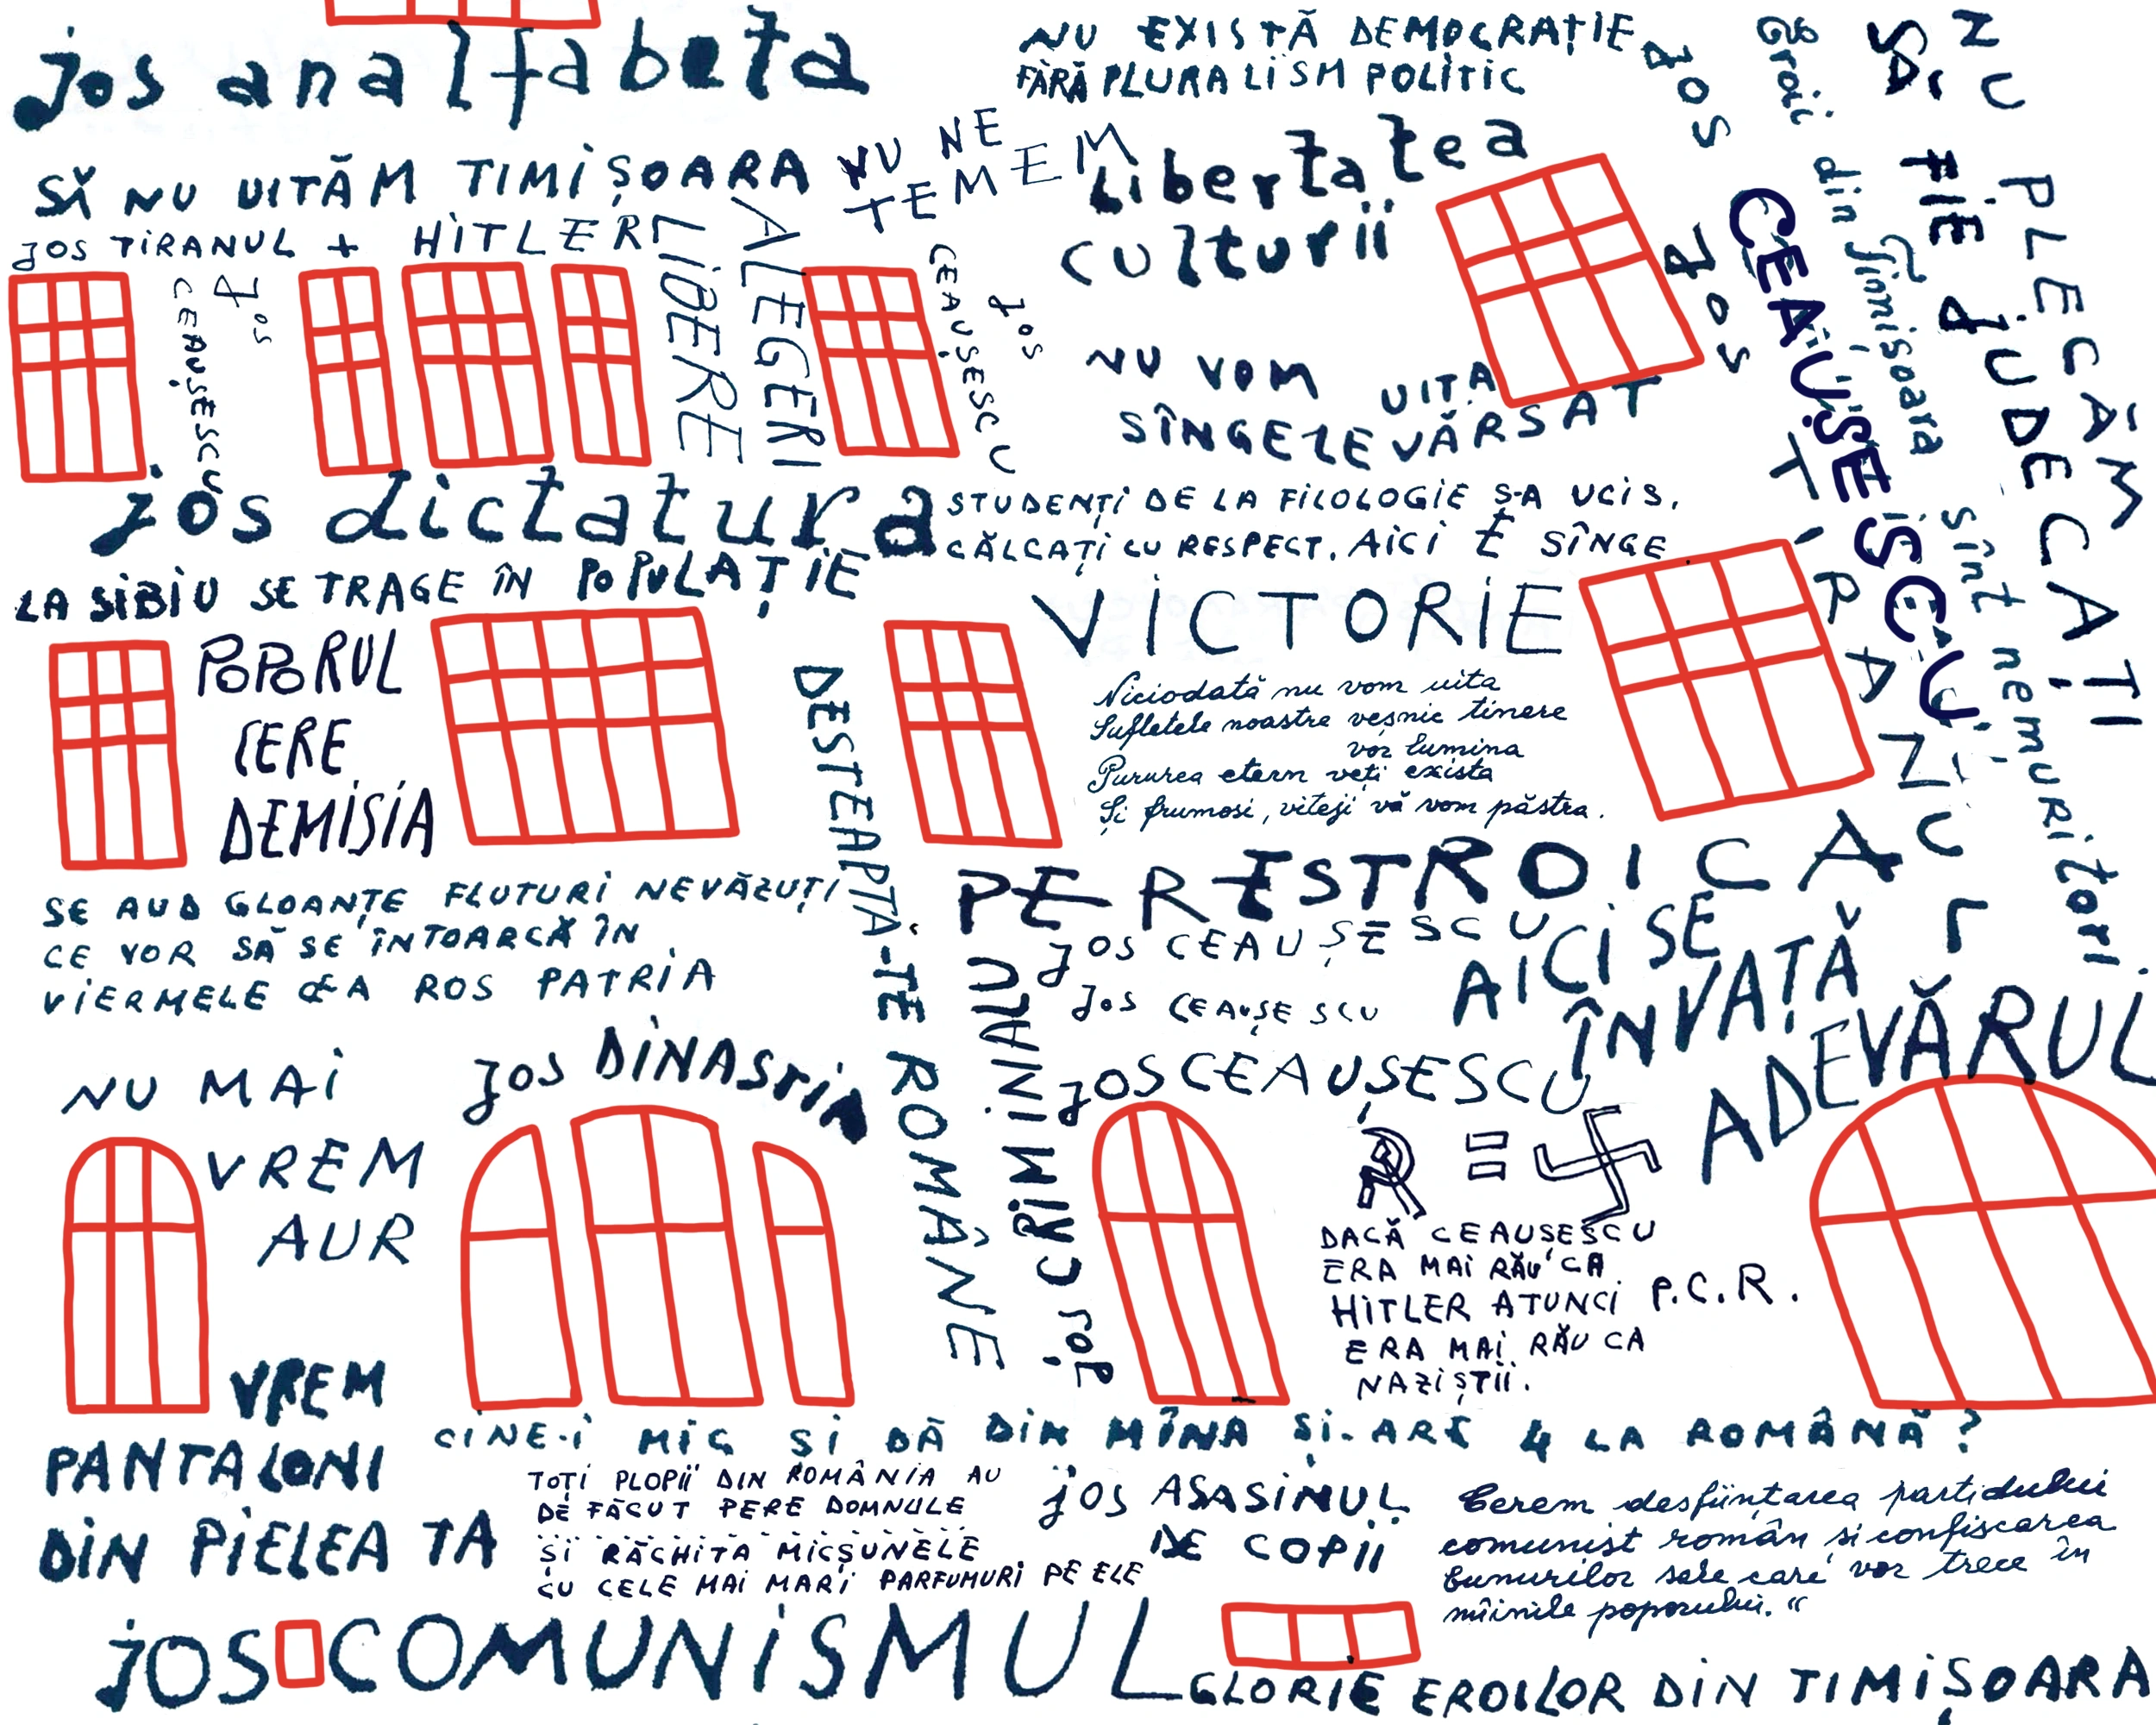 jos analfabeta
NU EXISTĂ DEMOCRAȚIE
FĂRĂ PLURALISM POLITIC
SĂ NU UITĂM TIMIȘOARA
NU NE
TEMEM
Libertatea
culturii
JOS TIRANUL + HITLER
JOS
CEAUȘESCU
ALEGERI
LIBERE
JOS
CEAUȘESCU
NU VOM UITA
SÎNGELE VĂRSAT
jos dictatura
STUDENȚI DE LA FILOLOGIE S-A UCIS.
CĂLCAȚI CU RESPECT. AICI E SÎNGE
LA SIBIU SE TRAGE ÎN POPULAȚIE
VICTORIE
POPORUL
CERE
DEMISIA
Niciodată nu vom uita
Sufletele noastre veșnic tinere
vor lumina
Pururea etern veți exista
Și frumosi, viteji vă vom păstra.
DESTEAPTĂ-TE ROMÂNE
PERESTROICA
SE AUD GLOANȚE FLUTURI NEVĂZUȚI
CE VOR SĂ SE ÎNTOARCĂ ÎN
VIERMELE CE A ROS PATRIA
JOS CEAUȘESCU
JOS CEAUȘESCU
JOS CEAUȘESCU
AICI SE
ÎNVAȚĂ
ADEVĂRUL
Jos CRIMINALU
NU MAI
VREM
AUR
Jos DINASTIA
☭ = 卐
DACĂ CEAUȘESCU
ERA MAI RĂU CA
HITLER ATUNCI P.C.R.
ERA MAI RĂU CA
NAZIȘTII.
VREM
PANTALONI
DIN PIELEA TA
CINE-I MIC SI DĂ DIN MÎNA ȘI-ARE 4 LA ROMÂNĂ?
TOȚI PLOPII DIN ROMÂNIA AU
DE FĂCUT PERE DOMNULE
SI RĂCHITA MICȘUNELE
CU CELE MAI MARI PARFUMURI PE ELE
jos ASASINUL
DE COPII
Cerem desființarea partidului
comunist român, si confiscarea
bunurilor sale care vor trece în
mîinile poporului."
JOS COMUNISMUL
GLORIE EROILOR DIN TIMIȘOARA
NU PLECĂM
SĂ FIE JUDECAȚI
Eroii din Timișoara sînt nemuritori.
JOS
CEAUȘESCU
JOS TIRANUL